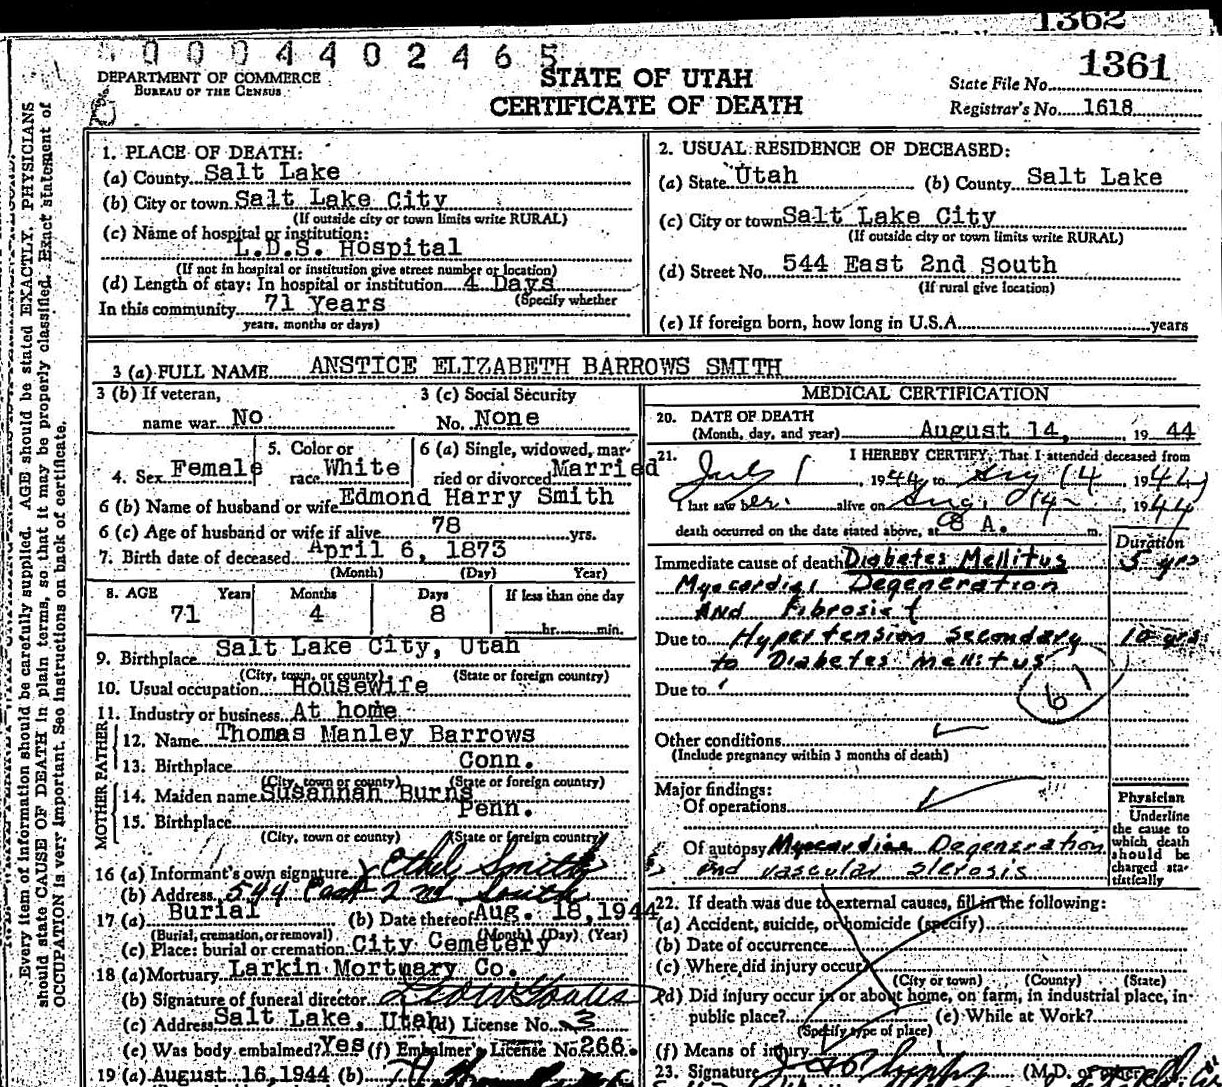 1362
0004402465
DEPARTMENT OF COMMERCE
BUREAU OF THE CENSUS
STATE OF UTAH
CERTIFICATE OF DEATH
State File No. 1361
Registrar's No. 1618
Every item of information should be carefully supplied. AGE should be stated EXACTLY. PHYSICIANS
should state CAUSE OF DEATH in plain terms, so that it may be properly classified. Exact statement of
OCCUPATION is very important. See instructions on back of certificate.
1. PLACE OF DEATH:
(a) County Salt Lake
(b) City or town Salt Lake City
(If outside city or town limits write RURAL)
(c) Name of hospital or institution:
L.D.S. Hospital
(If not in hospital or institution give street number or location)
(d) Length of stay: In hospital or institution 4 Days
(Specify whether
In this community 71 Years
years, months or days)
2. USUAL RESIDENCE OF DECEASED:
(a) State Utah (b) County Salt Lake
(c) City or town Salt Lake City
(If outside city or town limits write RURAL)
(d) Street No. 544 East 2nd South
(If rural give location)
(e) If foreign born, how long in U.S.A. years
3 (a) FULL NAME ANSTICE ELIZABETH BARROWS SMITH
3 (b) If veteran,
name war No
3 (c) Social Security
No. None
4. Sex Female
5. Color or
race White
6 (a) Single, widowed, mar-
ried or divorced Married
6 (b) Name of husband or wife Edmond Harry Smith
6 (c) Age of husband or wife if alive 78 yrs.
7. Birth date of deceased April 6, 1873
(Month) (Day) Year)
8. AGE Years Months Days If less than one day
71 4 8 hr. min.
9. Birthplace Salt Lake City, Utah
(City, town, or county) (State or foreign country)
10. Usual occupation Housewife
11. Industry or business At home
FATHER
12. Name Thomas Manley Barrows
13. Birthplace Conn.
(City, town or county) (State or foreign country)
MOTHER
14. Maiden name Susannah Burns
15. Birthplace Penn.
(City, town or county) (State or foreign country)
16 (a) Informant's own signature Ethel Smith
(b) Address 544 East 2nd South
17 (a) Burial (b) Date thereof Aug. 18, 1944
(Burial, cremation, or removal) (Month) (Day) (Year)
(c) Place: burial or cremation City Cemetery
18 (a) Mortuary Larkin Mortuary Co.
(b) Signature of funeral director
(c) Address Salt Lake, Utah (d) License No. 3
(e) Was body embalmed? Yes (f) Embalmer's License No. 266.
19 (a) August 16, 1944 (b)
MEDICAL CERTIFICATION
20. DATE OF DEATH
(Month, day, and year) August 14, 19 44
21. I HEREBY CERTIFY, That I attended deceased from
July 1, 1944 to Aug 14, 1944
I last saw her alive on Aug. 14, 1944
death occurred on the date stated above, at 8 A. m.
Duration
Immediate cause of death Diabetes Mellitus 5 yrs
Myocardial Degeneration
And Fibrosis
Due to Hypertension Secondary 10 yrs
to Diabetes mellitus
Due to
6
Other conditions
(Include pregnancy within 3 months of death)
Major findings:
Of operations
Of autopsy Myocardial Degeneration
and vascular sclerosis
Physician
Underline
the cause to
which death
should be
charged sta-
tistically
22. If death was due to external causes, fill in the following:
(a) Accident, suicide, or homicide (specify)
(b) Date of occurrence
(c) Where did injury occur
(City or town) (County) (State)
(d) Did injury occur in or about home, on farm, in industrial place, in-
public place? (e) While at Work?
(Specify type of place)
(f) Means of injury
23. Signature (M.D. or other)